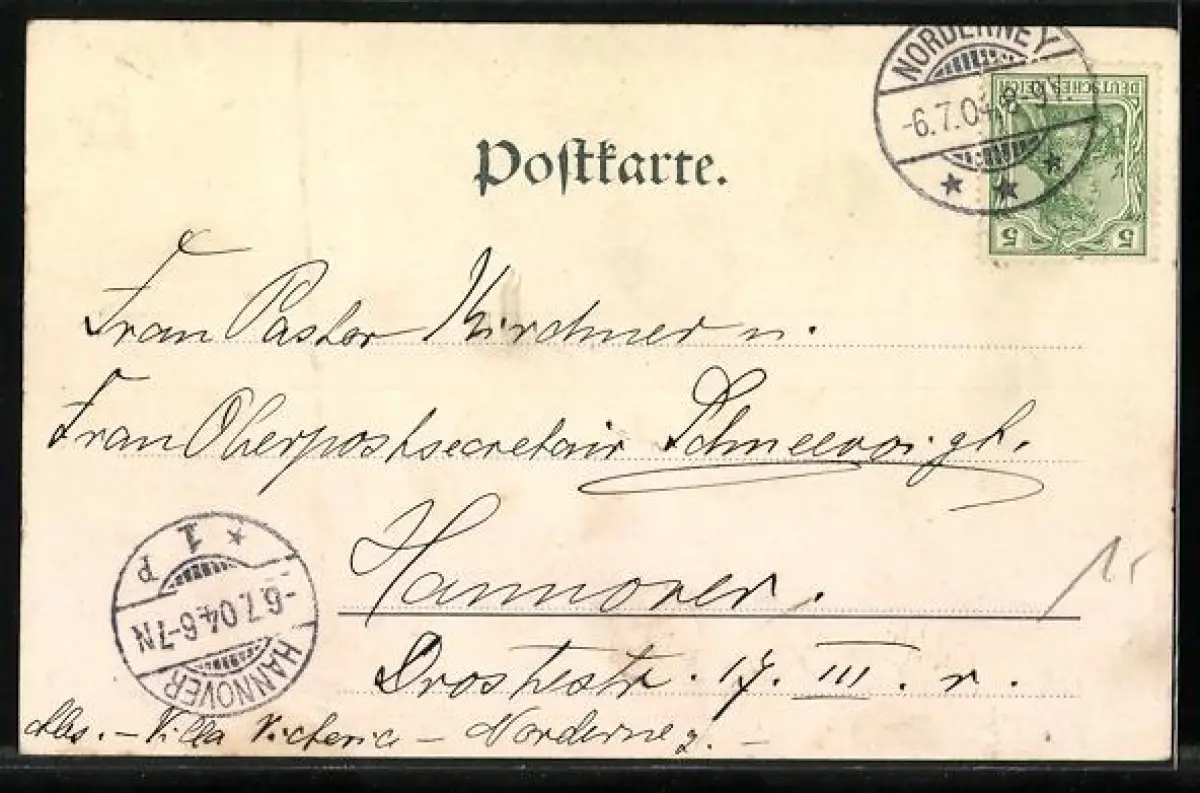 NORDERNEY
-6.7.04. 8-9V.
* * *
DEUTSCHES REICH
5 5
Postkarte.
Frau Pastor Kirchner u.
Frau Oberpostsecretair Schneevoigt.
Hannover.
Drostestr. 17. III. r.
HANNOVER
-6.7.04. 6-7N
* 1 P
Abs. - Villa Victoria - Norderney. -